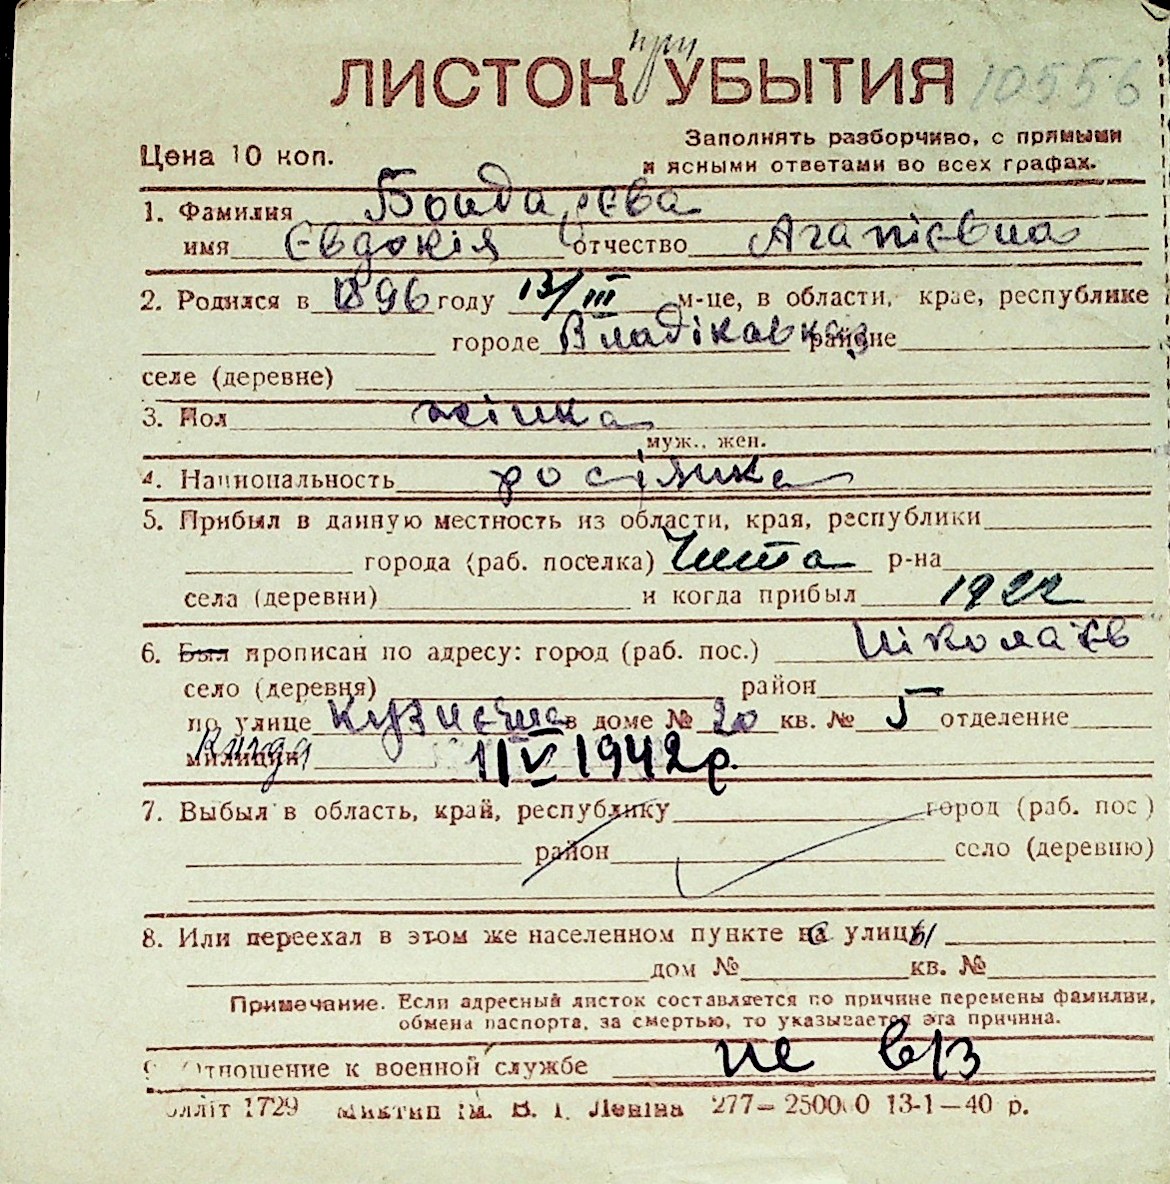 при
ЛИСТОК УБЫТИЯ 10556
Цена 10 коп.
Заполнять разборчиво, с прямыми
и ясными ответами во всех графах.
1. Фамилия Бондарєва
имя Євдокія отчество Агапієвна
2. Родился в 1896 году 13/III м-це, в области, крае, республике
городе Владікавказ районе
селе (деревне)
3. Пол жінка
муж., жен.
4. Национальность росіянка
5. Прибыл в данную местность из области, края, республики
города (раб. поселка) Чита р-на
села (деревни) и когда прибыл 1922
6. Был прописан по адресу: город (раб. пос.) Ніколаєв
село (деревня) район
по улице Кузнечна в доме № 20 кв. № 5 отделение
милиции
11 V 1942 р.
7. Выбыл в область, край, республику город (раб. пос)
район село (деревню)
8. Или переехал в этом же населенном пункте с улицы
дом № кв. №
Примечание. Если адресный листок составляется по причине перемены фамилии,
обмена паспорта, за смертью, то указывается эта причина.
9. Отношение к военной службе не в/з
1729 ім. В. І. Леніна 277— 13-1—40 р.